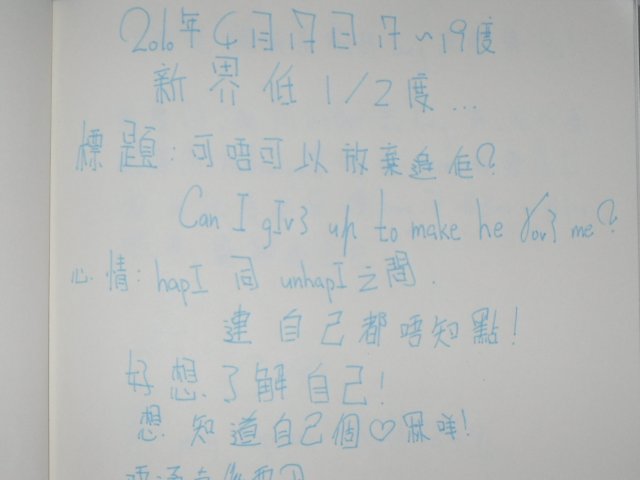 2010年4月17日 17~19度
新界低1/2度...
標題:可唔可以放棄追佢?
Can I gIv3 up to make he lov3 me?
心情:hapI 同 unhapI之間.
連自己都唔知點!
好想了解自己!
想知道自己個♡冧咩!